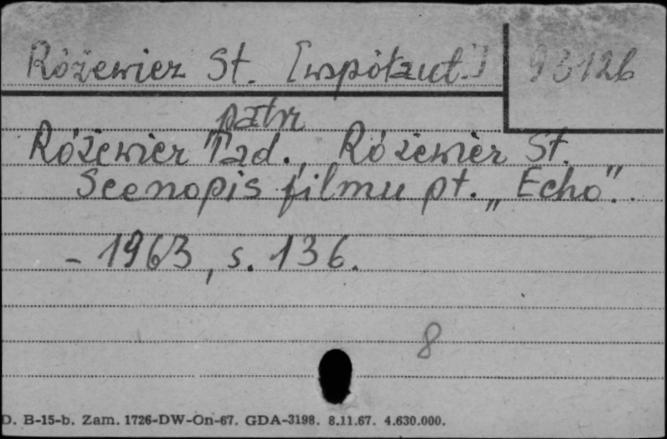 Różewicz St. [współaut.] 93126
patrz
Różewicz Tad., Różewicz St.
Scenopis filmu pt. „Echo”.
- 1963, s. 136.
8
D. B-15-b. Zam. 1726-DW-On-67. GDA-3198. 8.11.67. 4.630.000.